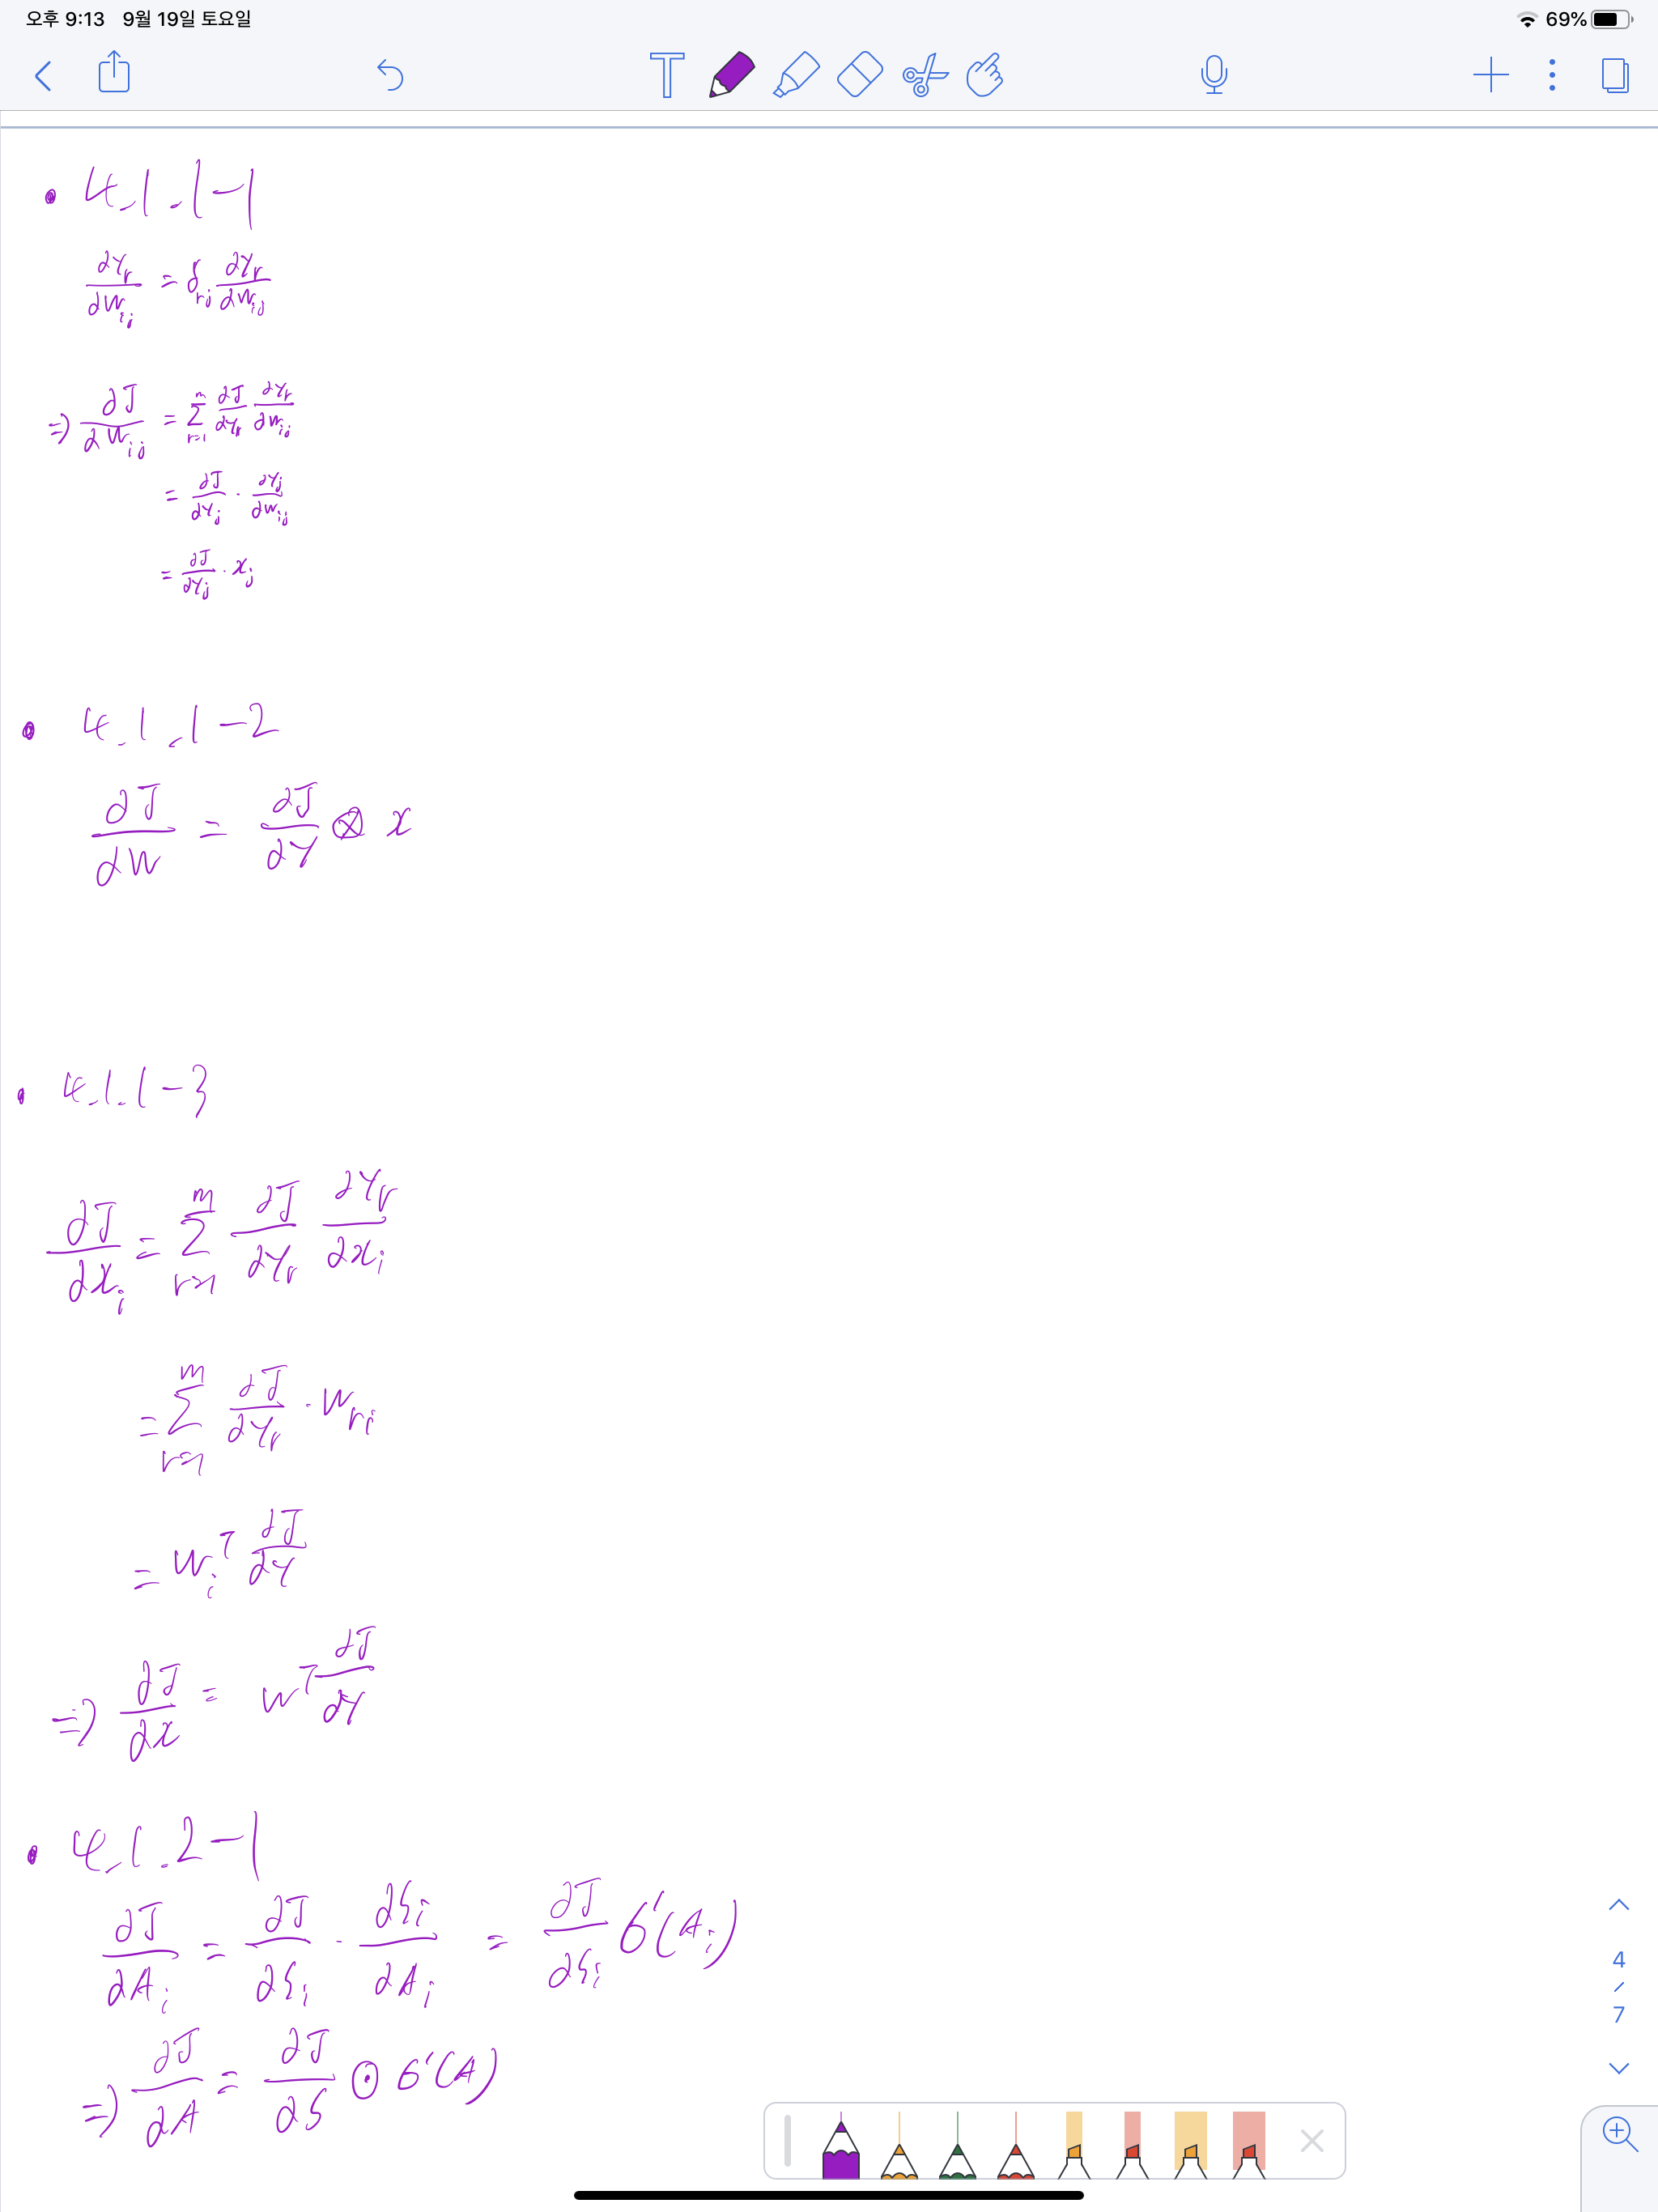 오후 9:13 9월 19일 토요일 69%
• 4.1.1-1
∂y_r/∂W_ij = δ_rj ∂y_r/∂W_ij
⇒ ∂J/∂W_ij = Σ_{r=1}^{m} ∂J/∂y_r ∂y_r/∂W_ij
= ∂J/∂y_j · ∂y_j/∂W_ij
= ∂J/∂y_j · x_j
• 4.1.1-2
∂J/∂W = ∂J/∂y ⊗ x
• 4.1.1-3
∂J/∂x_i = Σ_{r=1}^{m} ∂J/∂y_r ∂y_r/∂x_i
= Σ_{r=1}^{m} ∂J/∂y_r · W_ri
= W_i^T ∂J/∂y
⇒ ∂J/∂x = W^T ∂J/∂y
• 4.1.2-1
∂J/∂A_i = ∂J/∂S_i · ∂S_i/∂A_i = ∂J/∂S_i σ'(A_i)
⇒ ∂J/∂A = ∂J/∂S ⊙ σ'(A)
4
/
7